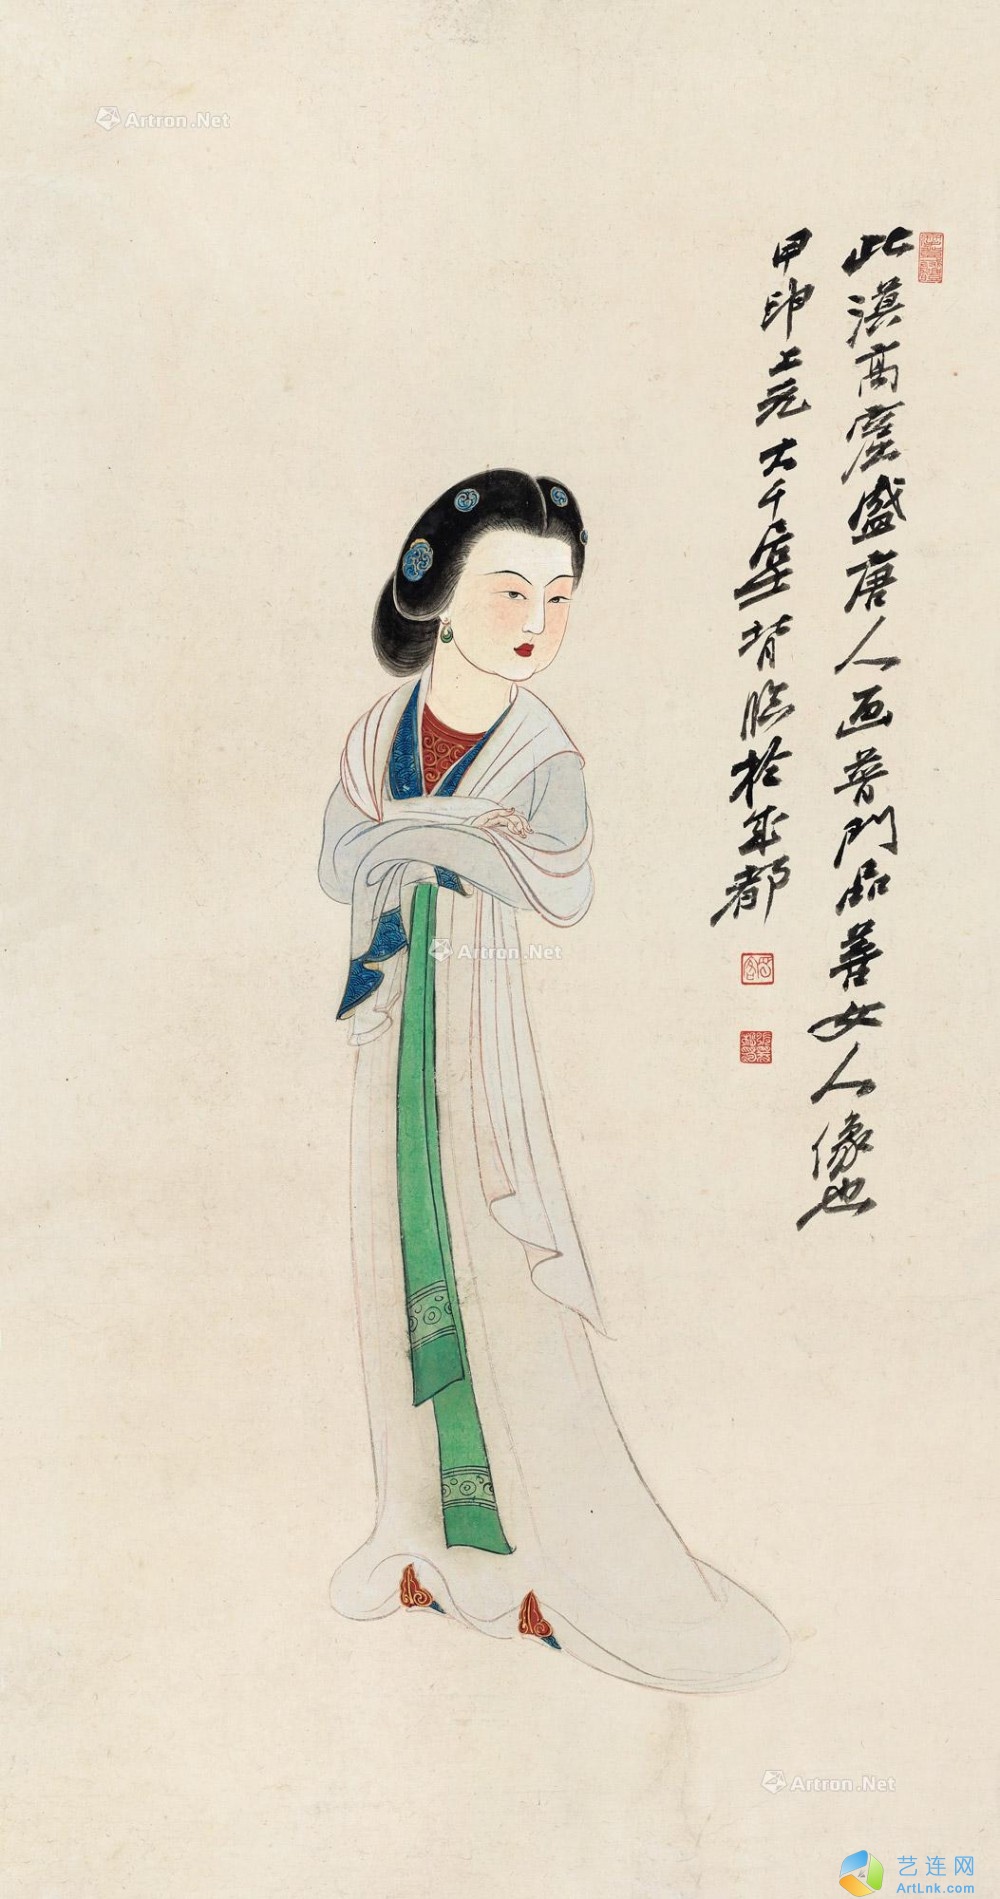 此漠高窟盛唐人画普門品善女人像也
甲申上元大千居士背臨於成都
Artron.Net
Artron.Net
Artron.Net
艺连网
ArtLnk.com